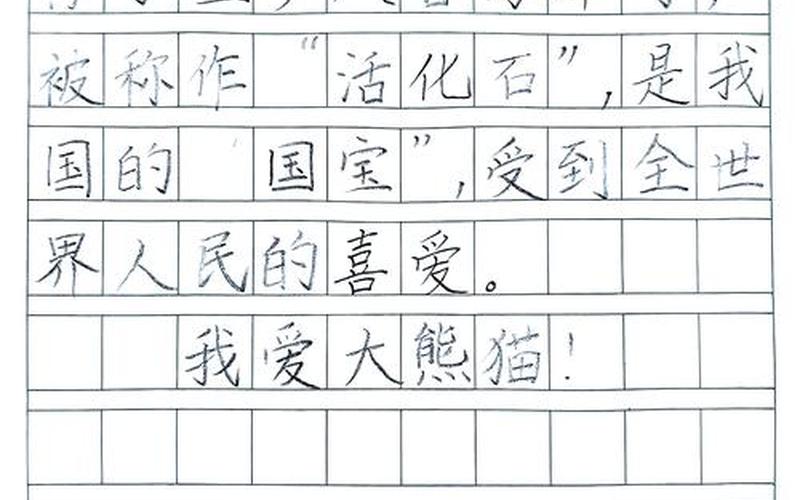 被称作“活化石”，是我
国的‘国宝”，受到全世
界人民的喜爱。
我爱大熊猫！